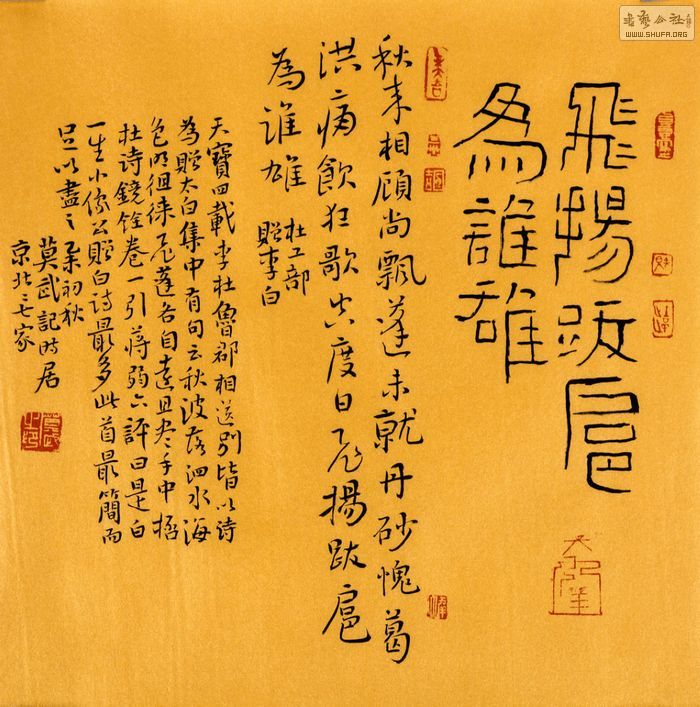 飛揚跋扈
為誰雄
秋来相顧尚飄蓬未就丹砂愧葛
洪痛飲狂歌空度日飛揚跋扈
為誰雄
杜工部
贈李白
天寶四載李杜魯郡相送別皆以詩
為贈太白集中有句云秋波落泗水海
色明徂徕飛蓬各自遠且尽手中
杜诗鏡铨卷一引蒋弱六評曰是白
一生小像公贈白诗最多此首最簡而
足以盡之
初秋
莫武記时居
京北三七家
書藝公社
WWW.SHUFA.ORG